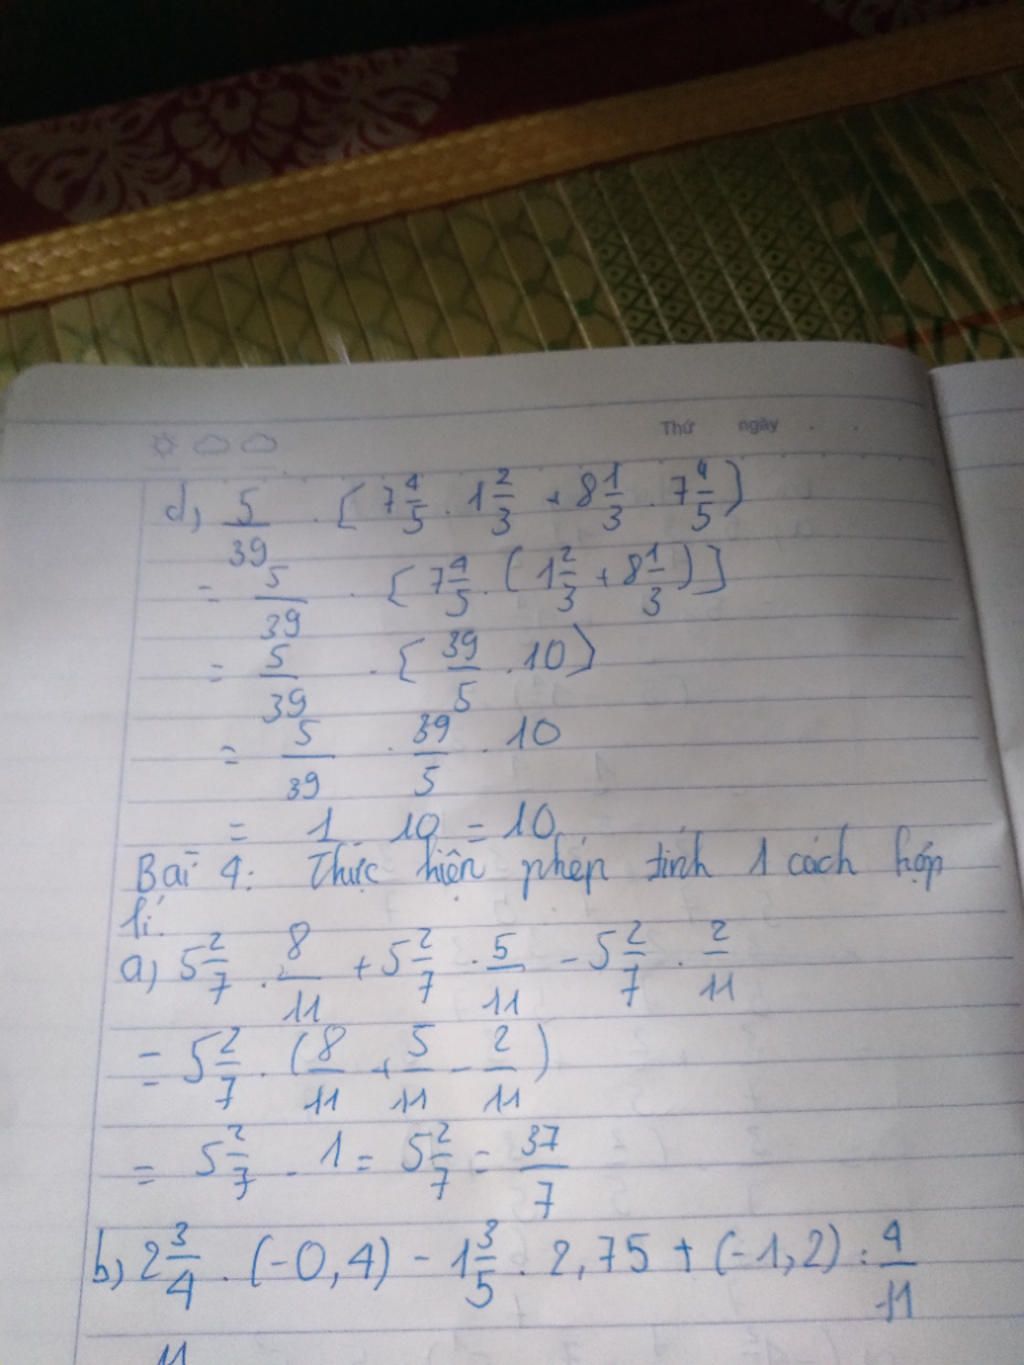 Thứ ngày
d, 5/39 . [ 7 4/5 . 1 2/3 + 8 1/3 . 7 4/5 ]
= 5/39 . [ 7 4/5 . ( 1 2/3 + 8 1/3 ) ]
= 5/39 . [ 39/5 . 10 ]
= 5/39 . 39/5 . 10
= 1 . 10 = 10
Bài 4: Thực hiện phép tính 1 cách hợp
lí.
a) 5 2/7 . 8/11 + 5 2/7 . 5/11 - 5 2/7 . 2/11
= 5 2/7 . ( 8/11 + 5/11 - 2/11 )
= 5 2/7 . 1 = 5 2/7 = 37/7
b) 2 3/4 . (-0,4) - 1 3/5 . 2,75 + (-1,2) : 4/11
11